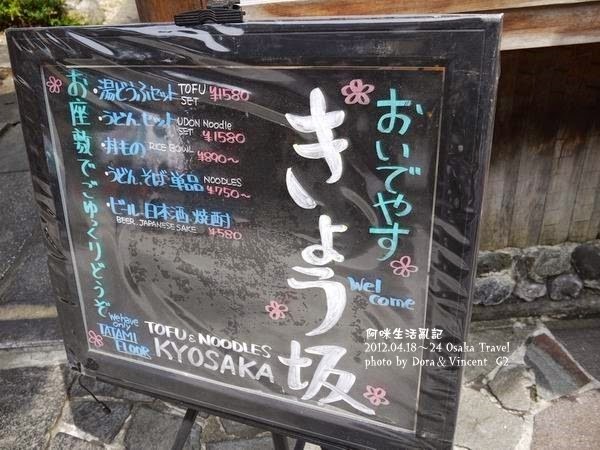 おいでやす
Wel
come
きょう坂
・湯どうふセット TOFU SET ¥1580
・うどんセット UDON Noodle SET ¥1580
・丼もの RICE BOWL ¥890〜
うどん、そば単品 NOODLES ¥750〜
ビール 日本酒、焼酎
BEER. JAPANESE SAKE ¥580
お座敷でごゆっくりどうぞ
we have
only
TATAMI
FLOOR
TOFU & NOODLES
KYOSAKA
阿咪生活亂記
2012.04.18~24 Osaka Travel
photo by Dora & Vincent G2